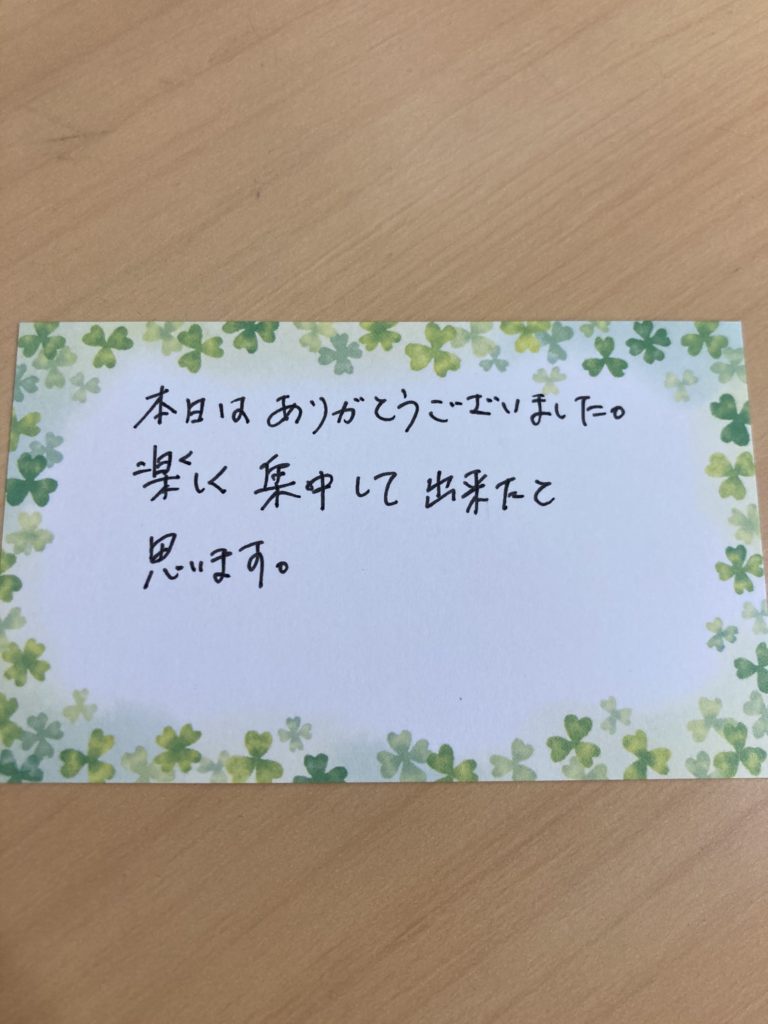 本日はありがとうございました。
楽しく集中して出来たと
思います。